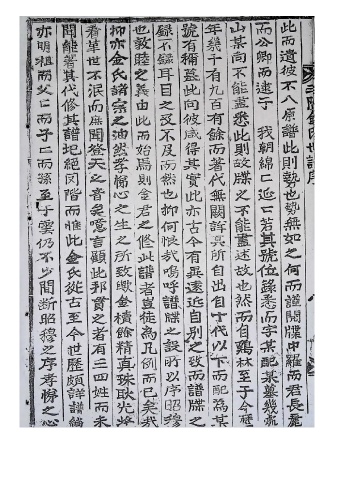 此而遺彼不入原譜此則勢也勢無如之何而謹閱牒中羅而君長麗
而公卿而逮于 我朝綿二延二若其號位錄悉而字某配某墓幾
山某向不能盡悉此則牒之不能盡述故也然而自鷄林至于今歷
年幾千有九百有餘而著代無闕詳其所自出自十代以下而配爲某
號有稱蓋此向彼咸得其實此亦古今有異遠近自別之致而譜牒之
錄不錄耳目之及不及而然也抑何恨哉嗚呼譜牒之設所以序昭穆
也敦睦之義由此而始焉則金君之修此譜者豈徒爲凡例而已矣哉
抑亦金氏諸宗之油然孝悌心之生之所致歟金積餘精眞珠耿光
看華世不泯而無聞登天之音矣噫言顯此邦實之者有三四姓而未
聞能著其代修其譜圮絶罔階而惟此金氏從古至今世歷頗詳譜
亦明祖而父二而子二而孫至于雲仍不少間斷昭穆之序孝悌之心